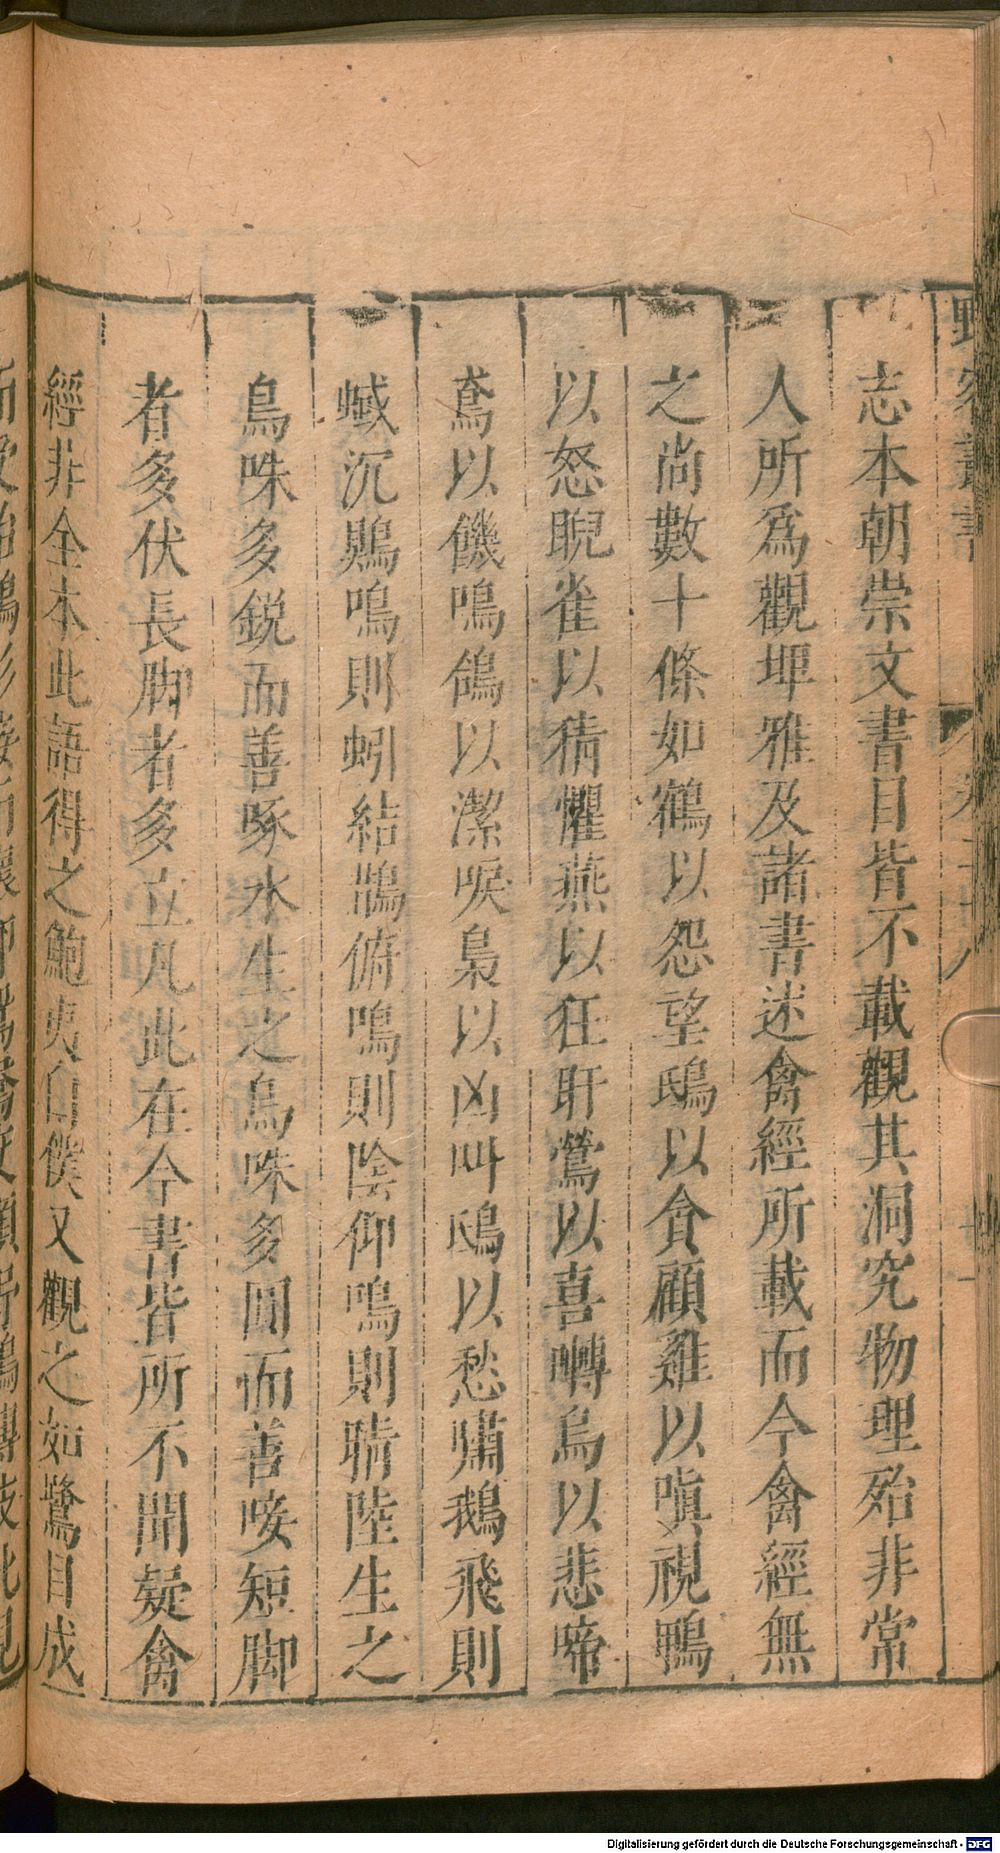 志本朝崇文書目皆不載觀其洞究物理殆非常
人所爲觀埤雅及諸書述禽經所載而今禽經無
之尚數十條如鶴以怨望鴟以貪顧雞以嗔視鴨
以怒睨雀以猜懼燕以狂盱鶯以喜囀烏以悲啼
鳶以饑鳴鴿以潔唳梟以凶叫鴟以愁嘯鵝飛則
蜮沉鵙鳴則蚓結鵲俯鳴則陰仰鳴則晴陸生之
鳥咮多鋭而善啄水生之鳥咮多圓而善唼短脚
者多伏長脚者多立凡此在今書皆所不聞疑禽
經非全本此語得之鮑夷白僕又觀之如鷺目成
Digitalisierung gefördert durch die Deutsche Forschungsgemeinschaft - DFG